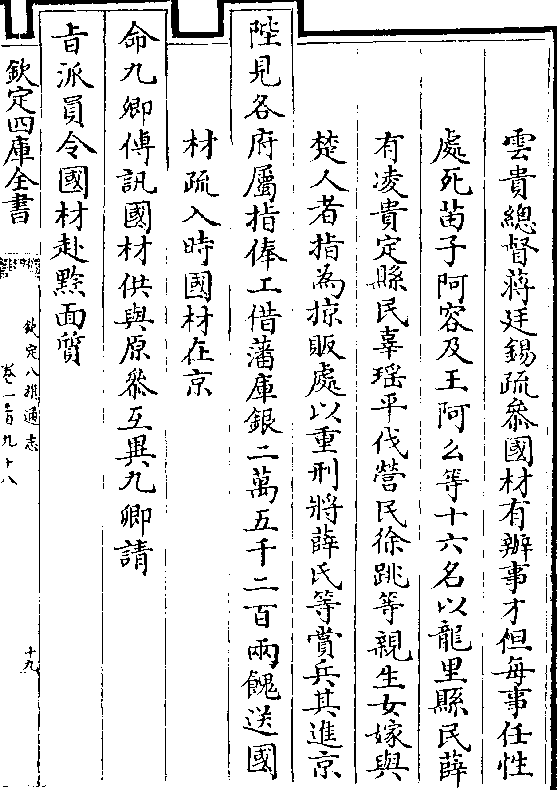 雲貴總督蔣廷錫疏叅國材有辦事才但每事任性
處死苗子阿容及王阿么等十六名以龍里縣民薛
有凌貴定縣民辜瑶平伐營民徐跳等親生女嫁與
楚人者指為掠販處以重刑將薛氏等賞兵其進京
陛見各府屬指俸工借藩庫銀二萬五千二百兩餽送國
材疏入時國材在京
命九卿傳訊國材供與原叅互異九卿請
㫖派員令國材赴黔面質
欽定四庫全書
欽定八旗通志
卷一百九十八
十九